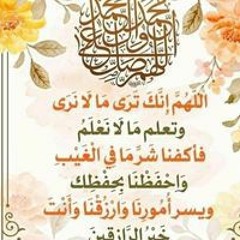 اللهم صل على محمد وآل محمد
اللَّهُمَّ إِنَّكَ تَرَى مَا لَا نَرَى
وتعلم مَا لَا نَعْلَمُ
فاكفنا شَرَّ مَا فِي الْغَيْبِ
وَاحْفَظْنَا بِحِفْظِكَ
ويسر أُمُورِنَا وَارْزُقْنَا وَأَنْتَ
خَيْرُ الرَّازِقِينَ